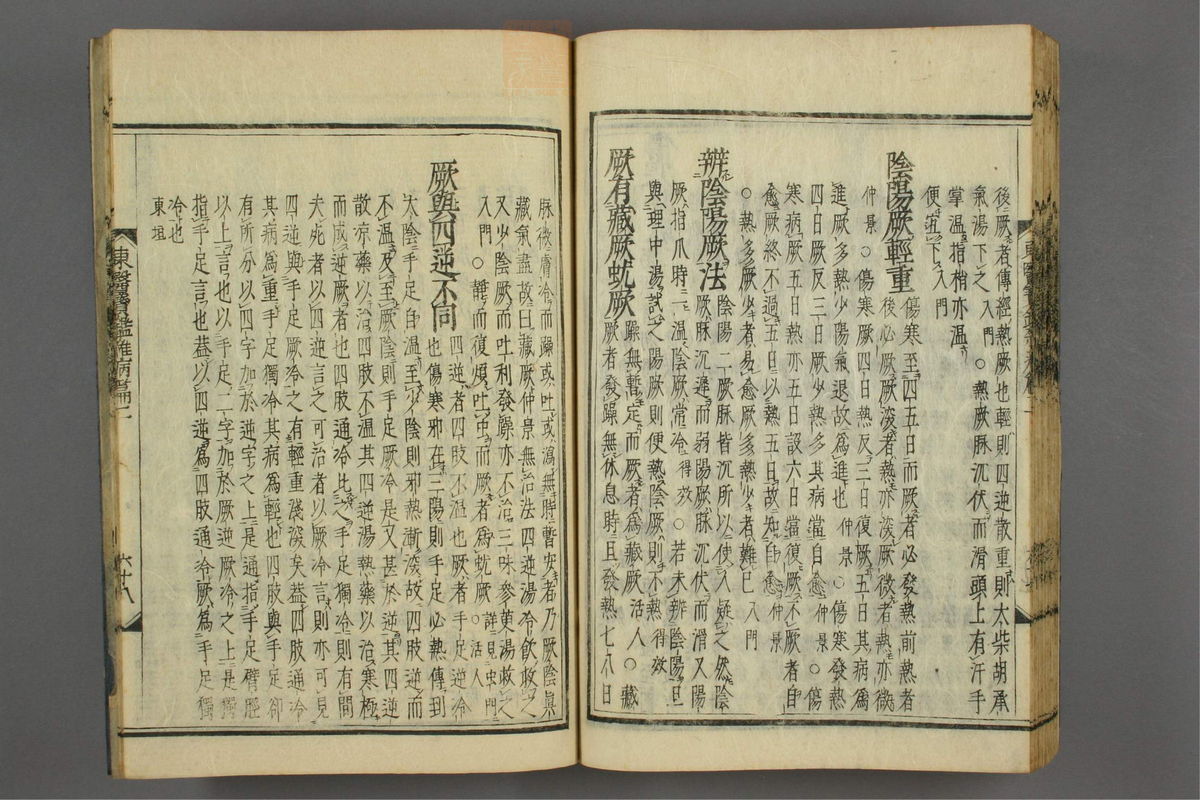 後厥者傳經熱厥也輕則四逆散重則太柴胡承
氣湯下之入門○熱厥脉沉伏而滑頭上有汗手
掌温指梢亦温
便宜下入門
陰陽厥輕重
傷寒至四五日而厥者必發熱前熱者
後必厥厥深者熱亦深厥微者熱亦微
仲景○傷寒厥四日熱反三日復厥五日其病爲
進厥多熱少陽氣退故爲進也仲景○傷寒發熱
四日厥反三日厥少熱多其病當自愈仲景○傷
寒病厥五日熱亦五日設六日當復厥不厥者自
愈厥終不過五日以熱五日故知自愈仲景
○熱多厥少者易愈厥多熱少者難已入門
辨陰陽厥法
陰陽二厥脉皆沉所以使人疑之然陰
厥脉沉遲而弱陽厥脉沉伏而滑又陽
厥指爪時一温陰厥常冷得效○若未辨陰陽且
與理中湯試之陽厥則便熱陰厥則不熱得效
厥有藏厥蚘厥
躁無暫定而厥者爲藏厥活人○藏
厥者發躁無休息時且發熱七八日
脉微膚冷而躁或吐或瀉無時暫安者乃厥陰眞
藏氣盡故曰藏厥仲景無治法四逆湯冷飲救之
又少陰厥而吐利發躁亦不治三味參萸湯救之
入門○靜而復煩吐虫而厥者爲蚘厥詳見虫門活人
厥與四逆不同
四逆者四肢不温也厥者手足逆冷
也傷寒邪在三陽則手足必熱傳到
太陰手足自温至少陰則邪熱漸深故四肢逆而
不温及至厥陰則手足厥冷是又甚於逆其四逆
散凉藥以治四肢不温其四逆湯熱藥以治寒極
而成逆厥者也四肢通冷比之手足獨冷則有間
夫死者以四逆言之可治者以厥冷言則亦可見
四逆與手足厥冷之有輕重淺深矣盖四肢通冷
其病爲重手足獨冷其病爲輕也四肢與手足卻
有所分以四字加於逆字之上是通指手足臂脛
以上言也以手足二字加於厥逆厥冷之上是獨
指手足言也盖以四逆爲四肢通冷厥爲手足獨
冷也
東垣
東醫寶鑑雜病篇二